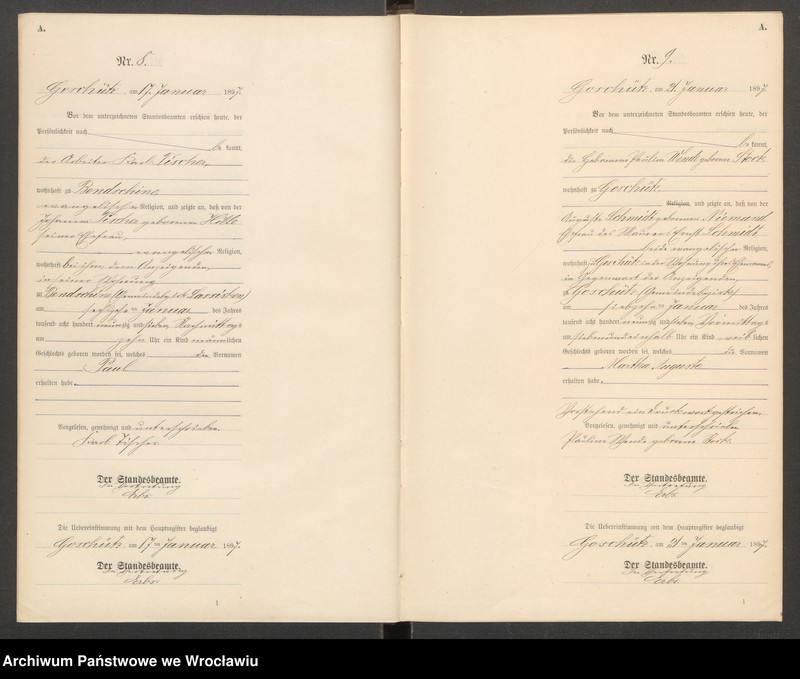 A.
Nr. 8.
Goschütz am 17. Januar 1897.
Vor dem unterzeichneten Standesbeamten erschien heute, der
Persönlichkeit nach
be kannt,
der Arbeiter Karl Tischer,
wohnhaft zu Bondschine,
evangelischer Religion, und zeigte an, daß von der
Johanna Tischer geborenen
seiner Ehefrau,
evangelischer Religion,
wohnhaft bei ihm, dem Anzeigenden,
in seiner Wohnung
zu Bondschine (Gemeindebezirk
am sechszehnten Januar des Jahres
tausend acht hundert neunzig und sieben Nachmittags
um zehn Uhr ein Kind männlichen
Geschlechts geboren worden sei, welches den Vornamen
Paul
erhalten habe.
Vorgelesen, genehmigt und unterschrieben.
Karl Tischer
Der Standesbeamte.
In Vertretung
Die Uebereinstimmung mit dem Hauptregister beglaubigt
Goschütz am 17ten Januar 1897.
Der Standesbeamte.
In Vertretung
1
A.
Nr. 9.
Goschütz am 21. Januar 1897.
Vor dem unterzeichneten Standesbeamten erschien heute, der
Persönlichkeit nach
be kannt,
die Hebamme Pauline geborene
wohnhaft zu Goschütz
Religion, und zeigte an, daß von der
Auguste Schmidt geborenen Niemand
Ehefrau des Maurers Ernst Schmidt
beide evangelischer Religion,
wohnhaft zu Goschütz in der Wohnung ihres Ehemannes,
in Gegenwart der Anzeigenden,
zu Goschütz (Gemeindebezirk)
am siebzehnten Januar des Jahres
tausend acht hundert neunzig und sieben Vormittags
um sieben und ein halb Uhr ein Kind weiblichen
Geschlechts geboren worden sei, welches die Vornamen
Martha Auguste
erhalten habe.
Vorstehend ein Druckwort gestrichen.
Vorgelesen, genehmigt und unterschrieben
Pauline geborene
Der Standesbeamte.
In Vertretung
Die Uebereinstimmung mit dem Hauptregister beglaubigt
Goschütz am 21ten Januar 1897.
Der Standesbeamte.
In Vertretung
1
Archiwum Państwowe we Wrocławiu